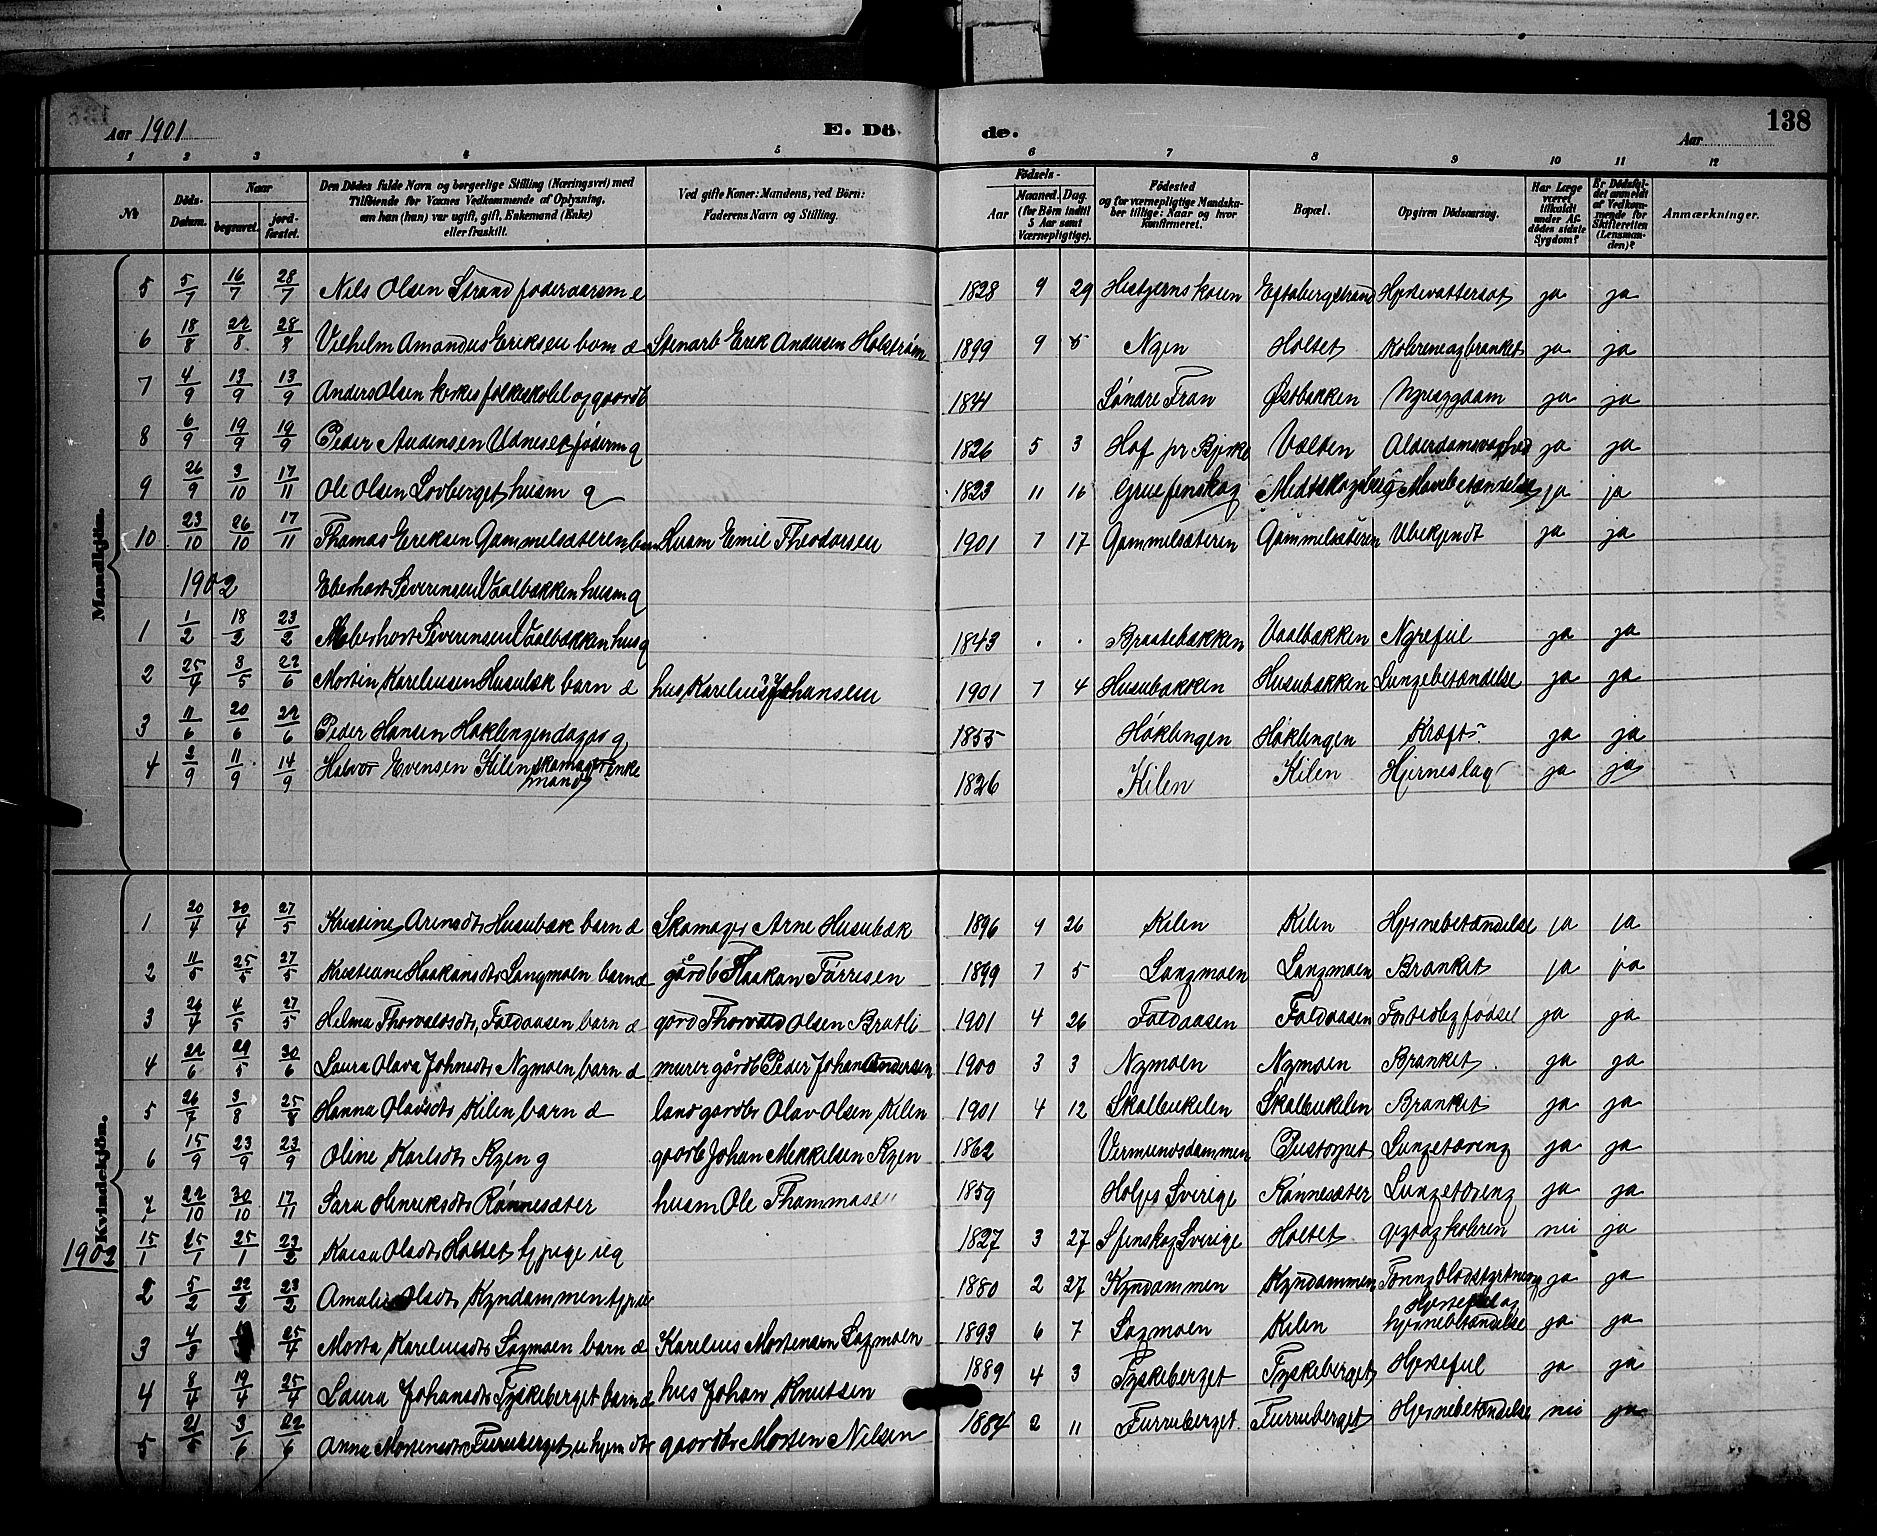 138
Aar 1901 E. Dö- de. Aar
1 2 3 4 5 6 7 8 9 10 11 12
№ Döds-Datum. Naar begravet. jordfæstet. Den Dödes fulde Navn og borgerlige Stilling (Næringsvei) med Tilföiende for Voxnes Vedkommende af Oplysning, om han (hun) var ugift, gift, Enkemand (Enke) eller fraskilt. Ved gifte Koner: Mandens, ved Börn: Faderens Navn og Stilling. Födsels- Aar Maaned. Dag. (for Börn indtil 5 Aar samt Værnepligtige). Födested og for værnepligtige Mandskaber tillige: Naar og hvor Konfirmeret. Bopæl. Opgiven Dödsaarsag. Har Læge været tilkaldt under Afdödes sidste Sygdom? Er Dödsfaldet anmeldt af Vedkommende for Skifteretten (Lensmanden)? Anmærkninger.
Mandkjön.
5 5/7 16/7 28/7 Nils Olsen Strand foderaadsm e 1828 9 29 ja ja
6 18/8 22/8 28/8 Vilhelm Amandus Eriksen barn d Stenarb Erik Andersen Holstrøm 1899 9 Ngen Holtet ja ja
7 4/9 13/9 13/9 Anders Olsen kirkes folkeskolel og gaardb 18 Søndre Fran Østbakken ja ja
8 6/9 19/9 19/9 Peder Andersen Udneset føderm g 1826 5 3 Hof pr Bjerke Vælten Alderdomssvaghed ja ja
9 26/9 3/10 17/11 Ole Olsen Lovberget husm g 1823 11 16 Gruefinskog Mavebetændelse ja ja
10 23/10 26/10 17/11 Thomas Eriksen Gammelsæteren barn Husm Emil Theodorsen 1901 7 17 Gammelsæteren Gammelsæteren Ubekjendt ja ja
1902 Eberhart Siverensen Vaalbækken husm g
1 1/2 18/2 23/2 Siverensen Vaalbækken hus g 1843 . . Braatebækken Vaalbækken Nyrefeil ja ja
2 25/4 3/5 22/6 Martin Kareliusen Husubæk barn d hus Karelius Johansen 1901 7 4 Husubækken Husubækken Lungebetændelse ja ja
3 11/6 20/6 22/6 Peder Hansen Høklingen dagar g 1855 Høklingen Høklingen Kræft ja ja
4 2/9 11/9 14/9 Halvor Evensen Kilen skomager enke
mand 1826 Kilen Kilen Hjerneslag ja ja
Kvindekjön.
1 20/4 30/4 27/5 Kristine Arnesdt Husubæk barn d Skomager Arne Husubæk 1896 4 26 Kilen Kilen Hjernebetændelse ja ja
2 11/5 25/5 27/5 Kristiane Haakansdt Langmoen barn d gårdb Haakan Tørresen 1899 7 5 Langmoen Langmoen Brankit ja ja
3 26/4 4/5 27/5 Helma Thorvaldsdt, Faldaasen barn d gård Thorvald Olsen Bratli 1901 4 26 Faldaasen Faldaasen Fortidlig fødsel ja ja
4 22/6 29/5 30/6 Laura Olava Johnsdt Nymoen barn d murer gårdb Peder Johan Andersen 1900 3 3 Nymoen Nymoen Brankit ja ja
5 26/7 3/8 25/8 Hanna Olavsdt Kilen barn d land gardbr Olav Olsen Kilen 1901 4 12 Skalbukilen Skalbukilen Brankit ja ja
6 15/9 23/9 23/9 Oline Karlsdt Ryen g gaardb Johan Mikkelsen Ryen 1862 Vermundsdammen Pustorpet Lungetæring ja ja
7 22/10 30/10 17/11 Sara Henriksdt Rønnesæter husm Ole Thammasen 1859 Holjes Sverige Rønnesæter Lungetæring ja ja
1902 15/1 25/1 25/1 23/2 Kaisa Olsdt Holtet tj pige ug 1827 3 27 Sverige Holtet nei ja
2 5/2 22/2 23/2 Amalie Olsdt Kyndammen tj 1880 2 27 Kyndammen Kyndammen ja ja
3 4/3 25/4 Marta Kareliusdt Lazmoen barn d Karelius Mortensen Lazmoen 1893 6 7 Lazmoen Kilen Hjertefeil og hjernebetændelse ja ja
4 8/4 19/4 25/4 Laura Johansdt Tyskeberget barn d hus Johan Knutsen 1889 4 3 Tyskeberget Tyskeberget Hjertefeil ja ja
5 21/5 3/6 22/6 Anna Mortensdt Furruberget, gaardbr Morten Nilsen 1884 2 11 Furruberget Furruberget Hjernebetændelse nei ja